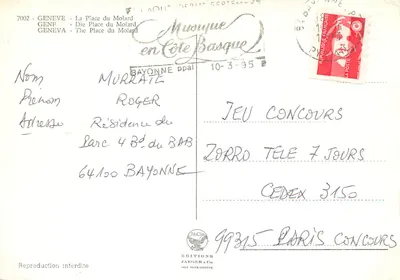 7002 - GENEVE - La Place du Molard
GENF - Die Place du Molard
GENEVA - The Place du Molard
Musique
en Côte Basque
BAYONNE ppal 10-3-95
Nom MURRATE
Prénom ROGER
Adresse Résidence du
Parc 4 Bd du BAB
64100 BAYONNE
JEU CONCOURS
ZORRO TELE 7 JOURS
CEDEX 3150
99315 PARIS CONCOURS
Reproduction interdite
EDITIONS